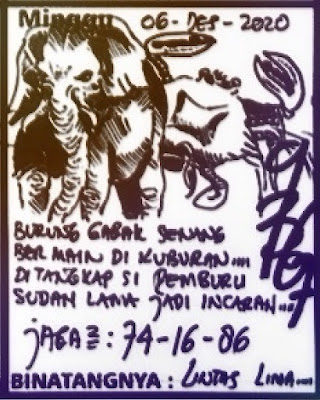 Minggu 06-DES-2020
BURUNG GAGAK SENANG
BERMAIN DI KUBURAN....
DITANGKAP SI PEMBURU
SUDAH LAMA JADI INCARAN...
JAGA2: 74-16-06
BINATANGNYA : LINTAS LIMA....